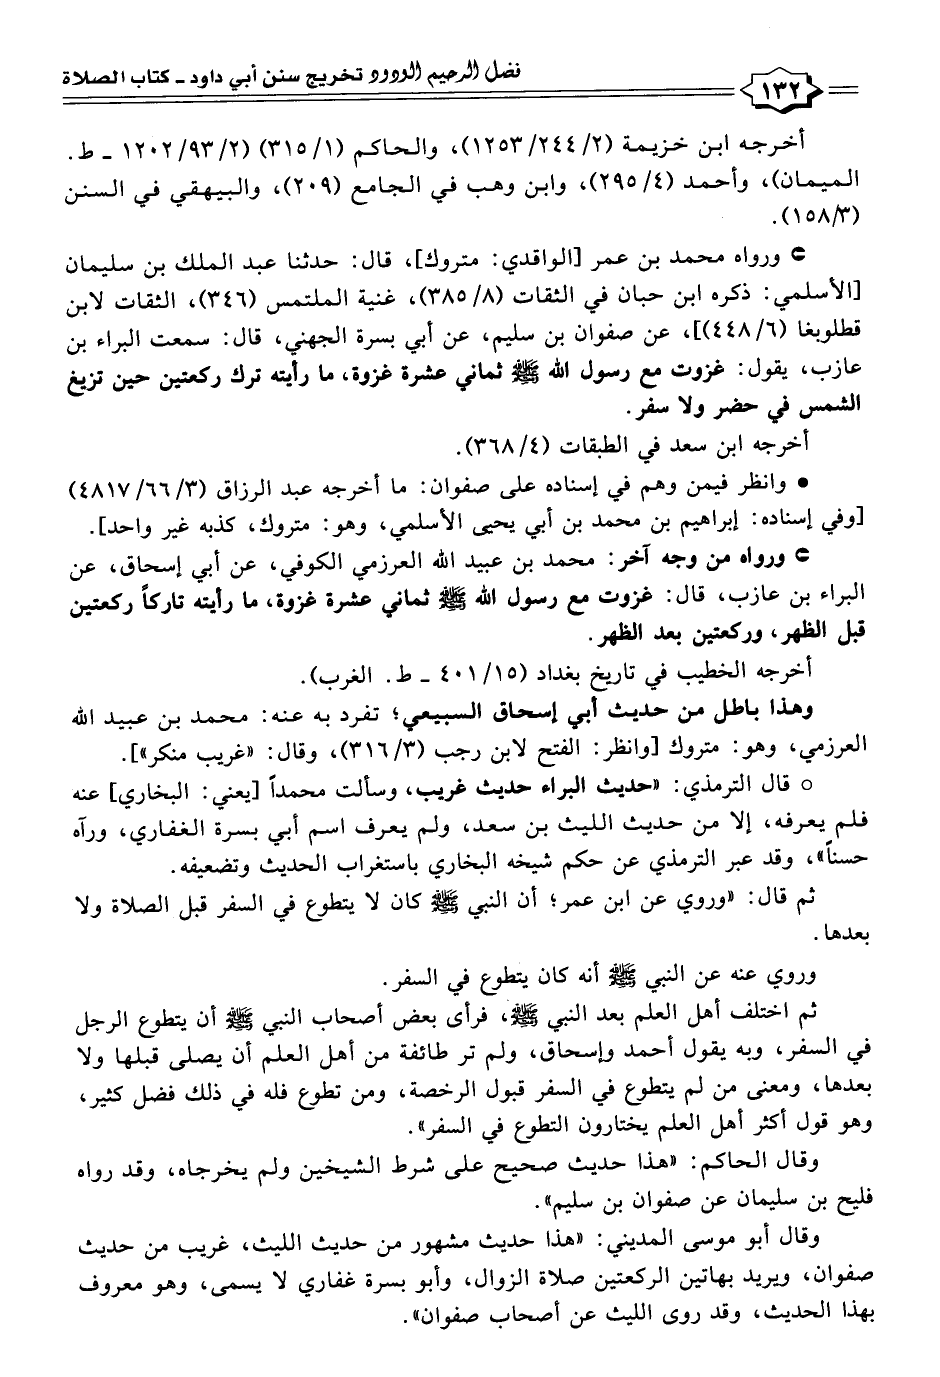 ١٣٢ فضل الرحيم الودود تخريج سنن أبي داود ـ كتاب الصلاة
أخرجه ابن خزيمة (٢/ ٢٤٤/ ١٢٥٣)، والحاكم (١/ ٣١٥) (٢/ ٩٣/ ١٢٠٢ ـ ط.
الميمان)، وأحمد (٤/ ٢٩٥)، وابن وهب في الجامع (٢٠٩)، والبيهقي في السنن
(٣/ ١٥٨).
ورواه محمد بن عمر [الواقدي: متروك]، قال: حدثنا عبد الملك بن سليمان
[الأسلمي: ذكره ابن حبان في الثقات (٨/ ٣٨٥)، غنية الملتمس (٣٤٦)، الثقات لابن
قطلوبغا (٦/ ٤٤٨)]، عن صفوان بن سليم، عن أبي بسرة الجهني، قال: سمعت البراء بن
عازب، يقول: غزوت مع رسول الله ﷺ ثماني عشرة غزوة، ما رأيته ترك ركعتين حين تزيغ
الشمس في حضر ولا سفر.
أخرجه ابن سعد في الطبقات (٤/ ٣٦٨).
• وانظر فيمن وهم في إسناده على صفوان: ما أخرجه عبد الرزاق (٣/ ٦٦/ ٤٨١٧)
[وفي إسناده: إبراهيم بن محمد بن أبي يحيى الأسلمي، وهو: متروك، كذبه غير واحد].
ورواه من وجه آخر: محمد بن عبيد الله العرزمي الكوفي، عن أبي إسحاق، عن
البراء بن عازب، قال: غزوت مع رسول الله ﷺ ثماني عشرة غزوة، ما رأيته تاركاً ركعتين
قبل الظهر، وركعتين بعد الظهر.
أخرجه الخطيب في تاريخ بغداد (١٥/ ٤٠١ ـ ط. الغرب).
وهذا باطل من حديث أبي إسحاق السبيعي؛ تفرد به عنه: محمد بن عبيد الله
العرزمي، وهو: متروك [وانظر: الفتح لابن رجب (٣/ ٣١٦)، وقال: «غريب منكر»].
○ قال الترمذي: «حديث البراء حديث غريب، وسألت محمداً [يعني: البخاري] عنه
فلم يعرفه، إلا من حديث الليث بن سعد، ولم يعرف اسم أبي بسرة الغفاري، ورآه
حسناً»، وقد عبر الترمذي عن حكم شيخه البخاري باستغراب الحديث وتضعيفه.
ثم قال: «وروي عن ابن عمر؛ أن النبي ﷺ كان لا يتطوع في السفر قبل الصلاة ولا
بعدها.
وروي عنه عن النبي ﷺ أنه كان يتطوع في السفر.
ثم اختلف أهل العلم بعد النبي ﷺ، فرأى بعض أصحاب النبي ﷺ أن يتطوع الرجل
في السفر، وبه يقول أحمد وإسحاق، ولم تر طائفة من أهل العلم أن يصلى قبلها ولا
بعدها، ومعنى من لم يتطوع في السفر قبول الرخصة، ومن تطوع فله في ذلك فضل كثير،
وهو قول أكثر أهل العلم يختارون التطوع في السفر».
وقال الحاكم: «هذا حديث صحيح على شرط الشيخين ولم يخرجاه، وقد رواه
فليح بن سليمان عن صفوان بن سليم».
وقال أبو موسى المديني: «هذا حديث مشهور من حديث الليث، غريب من حديث
صفوان، ويريد بهاتين الركعتين صلاة الزوال، وأبو بسرة غفاري لا يسمى، وهو معروف
بهذا الحديث، وقد روى الليث عن أصحاب صفوان».